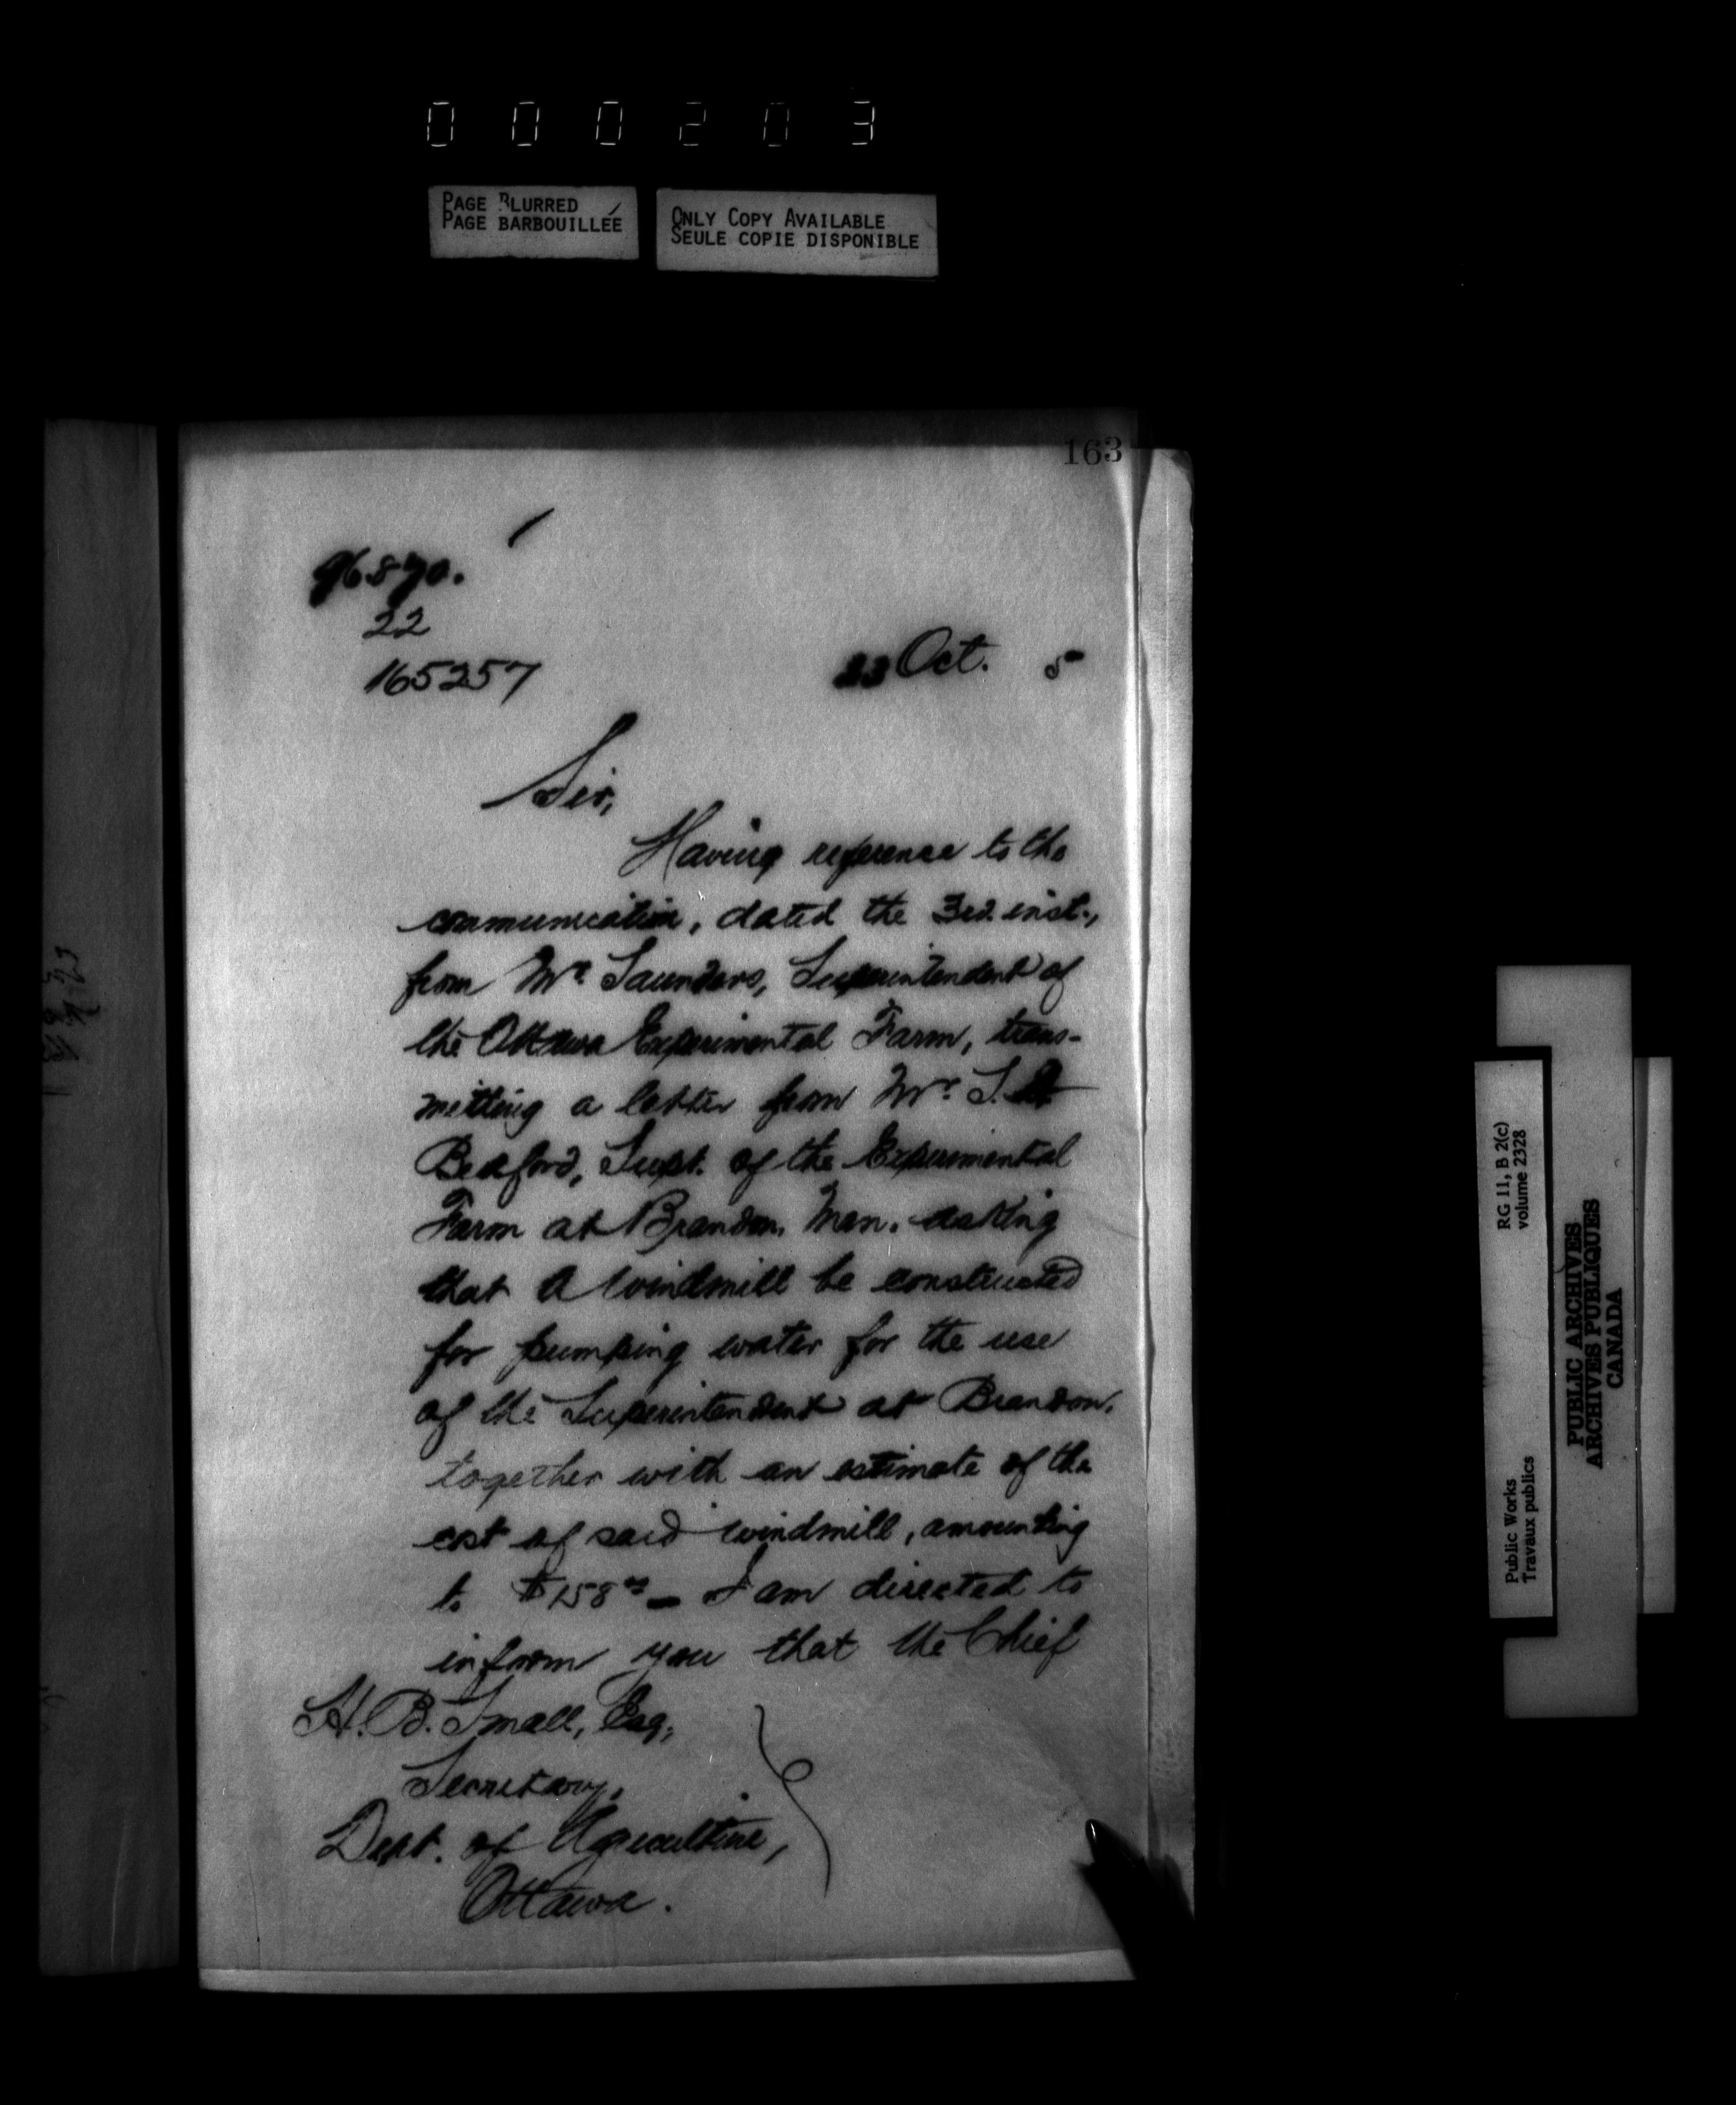 000203
PAGE BLURRED
PAGE BARBOUILLÉE
ONLY COPY AVAILABLE
SEULE COPIE DISPONIBLE
163
96870.
22
165257
23 Oct. 5
Sir,
Having reference to the
communication, dated the 3rd. inst.,
from Mr. Saunders, Superintendent of
the Ottawa Experimental Farm, trans-
mitting a letter from Mr. S. A.
Bedford, Supt. of the Experimental
Farm at Brandon, Man. asking
that a windmill be constructed
for pumping water for the use
of the Superintendent at Brandon,
together with an estimate of the
cost of said windmill, amounting
to $158 — I am directed to
inform you that the Chief
H. B. Small, Esq,
Secretary,
Dept. of Agriculture,
Ottawa.
RG 11, B 2(c)
volume 2328
Public Works
Travaux publics
PUBLIC ARCHIVES
ARCHIVES PUBLIQUES
CANADA